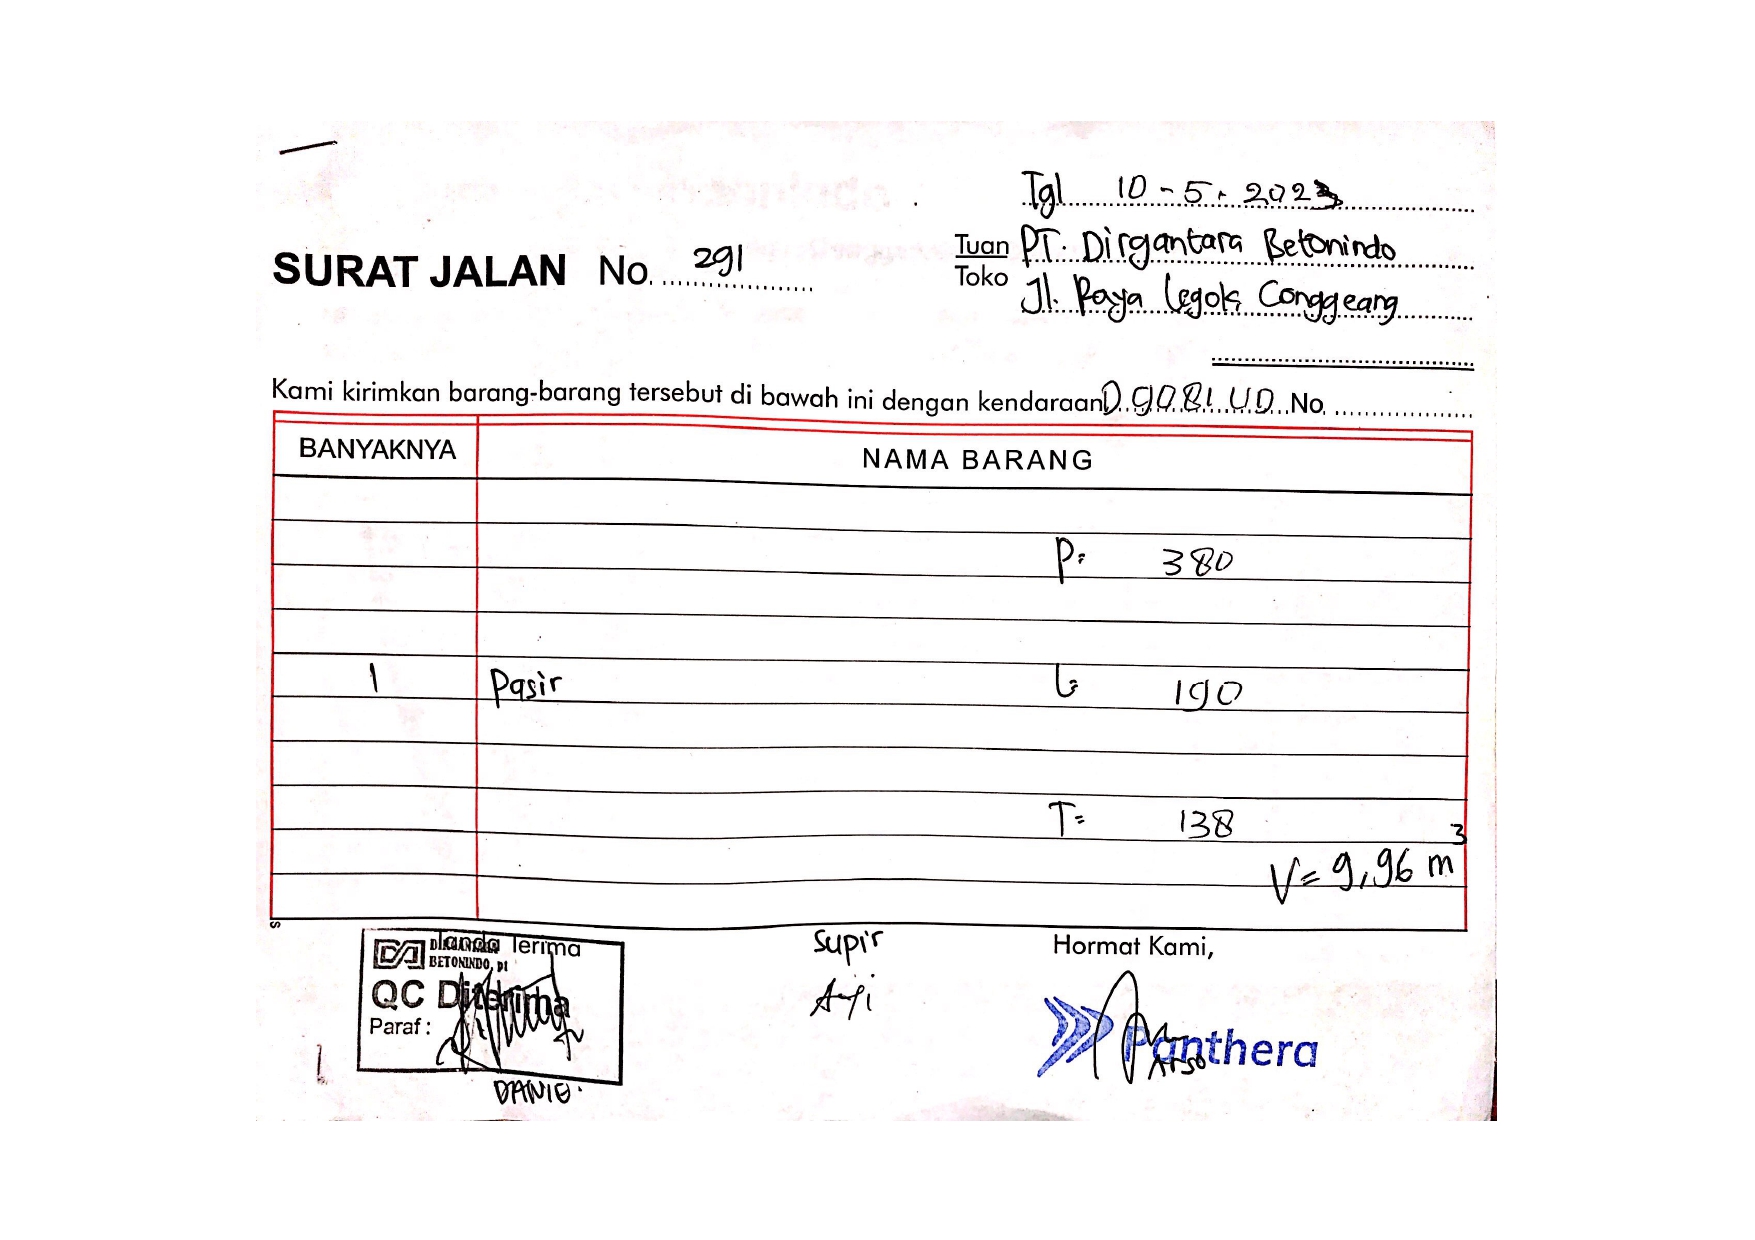 Tgl 10 - 5 . 2023
SURAT JALAN No. 291
Tuan PT. Dirgantara Betonindo
Toko Jl. Raya Legok Conggeang
Kami kirimkan barang-barang tersebut di bawah ini dengan kendaraan D 9081 UD No.
BANYAKNYA NAMA BARANG
P= 380
1 Pasir L= 190
T= 138
V= 9,96 m³
Tanda Terima Supir Hormat Kami,
BETONINDO, PT
QC Diterima
Paraf :
Panthera